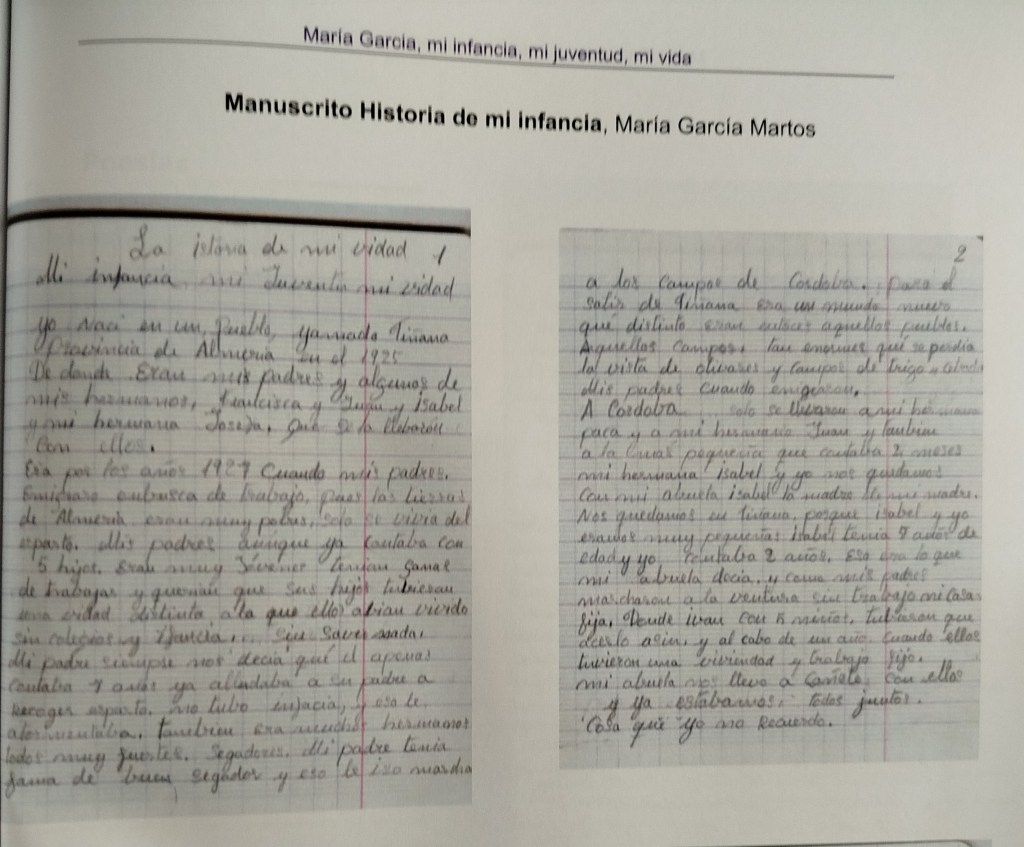 María Garcia, mi infancia, mi juventud, mi vida
Manuscrito Historia de mi infancia, María García Martos
La istoria de mi vidad 1
Mi infancia, mi Juventu mi vidad
yo Naci en un Pueblo, yamado Fiñana
Provincia de Almeria en el 1925
De donde Eran mis padres y algunos de
mis hermanos, Francisca y Juan y isabel
y mi hermana Josefa, que se la llebaron
con ellos.
Era por los años 1927 Cuando mis padres.
Emigraro enbusca de trabajo, pues las tierras
de Almeria eran muy pobres, solo se vivia del
esparto. Mis padres aunque ya Contaba con
5 hijos. Eran muy Jovenes tenian ganas
de trabajar y querian que sus hijos tubieran
una vidad distinta a la que ellos abian vivido
sin colegios y infancia... sin saver nada.
Mi padre siempre nos decia que el apenas
Contaba 7 años ya alludaba a su padre a
Recoger esparto. no tubo infacia, y eso le
atormentaba, tambien era muchos hermanos
todos muy fuertes. Segadores. Mi padre tenia
fama de buen segador y eso le izo marcha
2
a los Campos de Cordoba. para el
salir de Fiñana era un mundo nuevo
que distinto eran aquellos pueblos.
Aquellos Campos, tan enormes que se perdia
la vista de olivares y campos de trigo y
Mis padres cuando emigraron,
A Cordoba... solo se llevaron a mi hermana
paca y a mi hermano Juan y tanbien
a la mas pequeña que contaba 2 meses
mi hermana isabel y yo nos quedamos
Con mi abuela isabel la madre de mi madre.
Nos quedamos en Fiñana, porque isabel y yo
eramos muy pequeñas isabel tenia 7 años de
edad y yo contaba 2 años. Eso era lo que
mi abuela decia, y como mis padres
marcharon a la ventura sin trabajo ni Casa
fija. Donde ivan con 5 niños, tubieron que
acerlo asin, y al cabo de un año. Cuando ellos
tuvieron una viviendad y trabajo fijo.
mi abuela nos llevo a Cañete, con ellos
y ya estabamos, todos juntos.
Cosa que yo no Recuerdo.